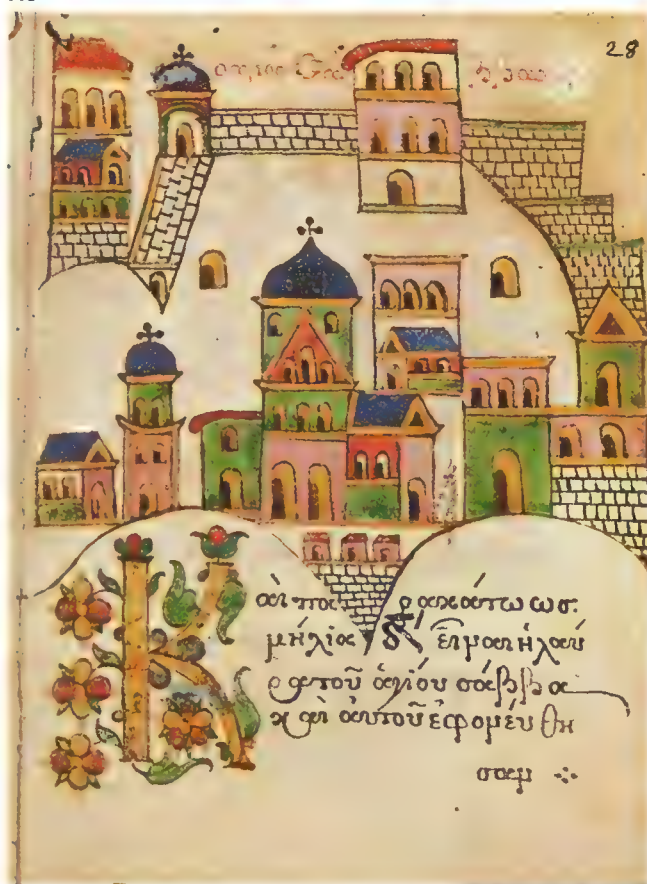 28
ὁ ἅγιος
Καὶ πα ρακάτω ὡσ.
μήλια δ' εἶναι ἡ λαύ
ρα τοῦ ἁγίου σάββα
καὶ αὐτοῦ ἐφονεύθη
σαν